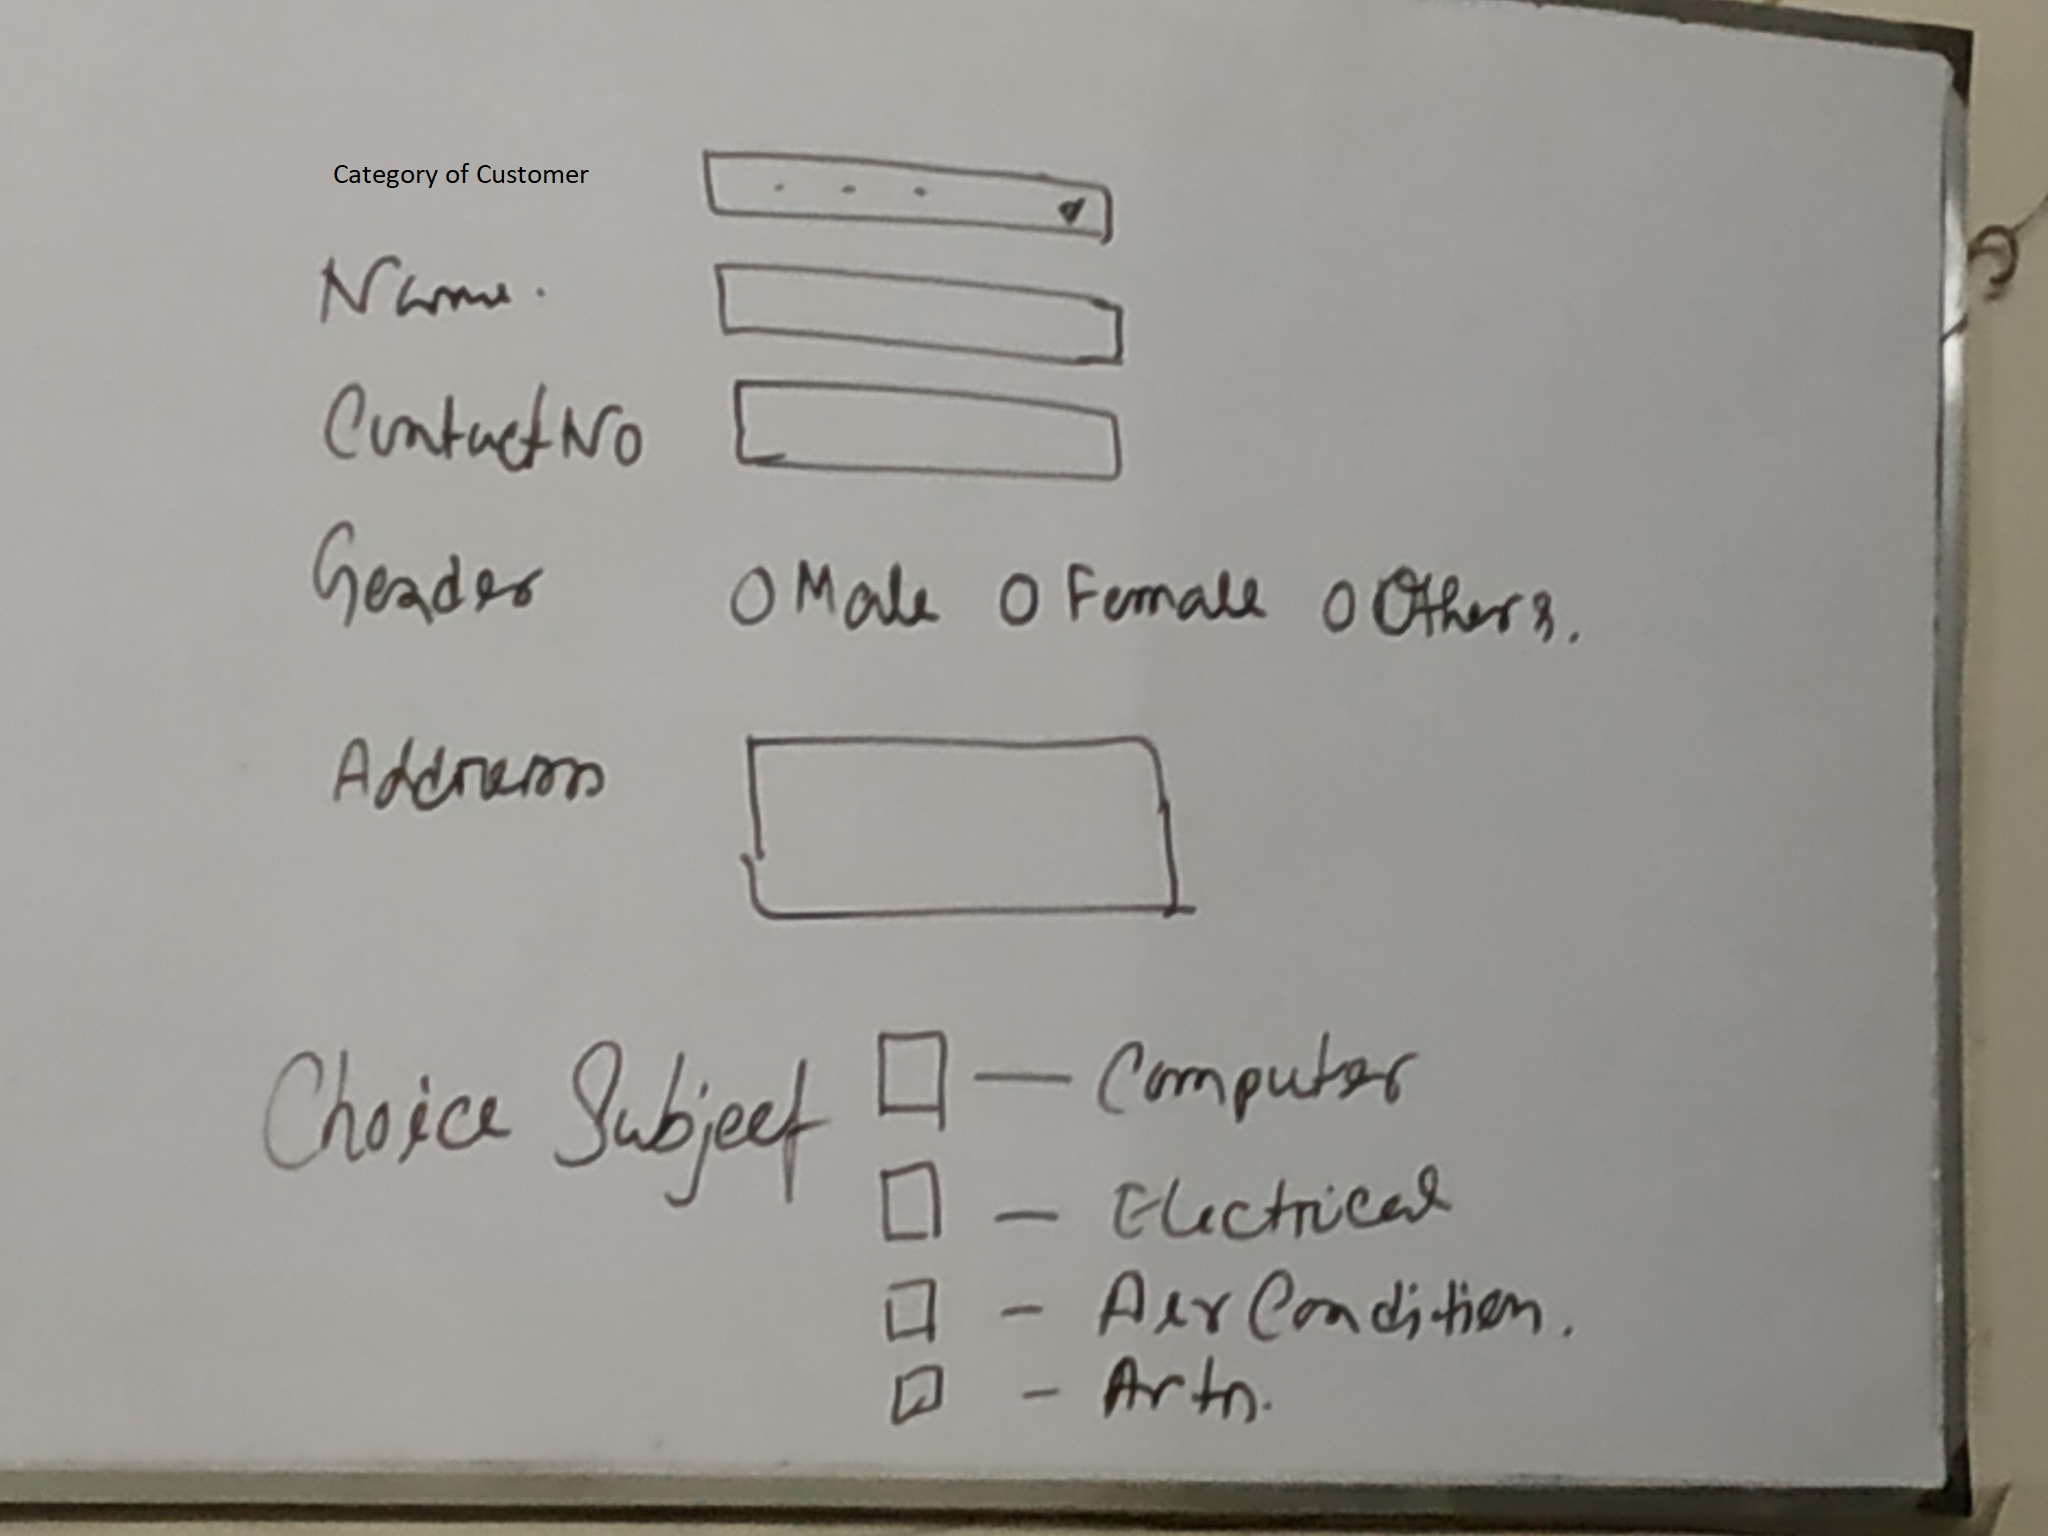 Category of Customer
Name.
Contact No
Gender O Male O Female O Others.
Address
Choice Subject - Computer
- Electrical
- Air Condition.
- Arts.